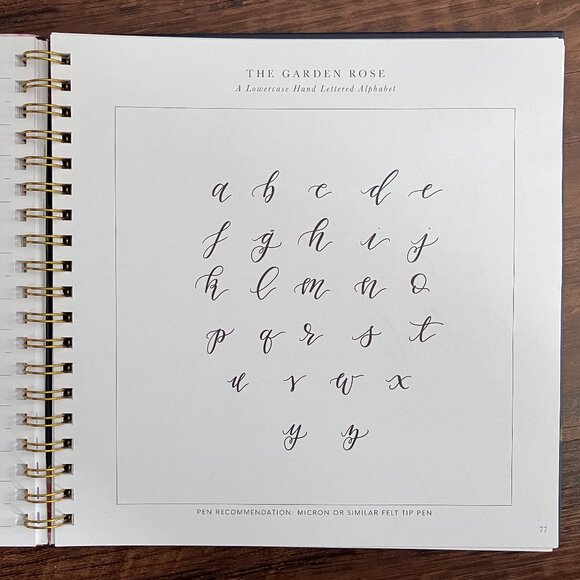 THE GARDEN ROSE
A Lowercase Hand Lettered Alphabet
a b c d e
f g h i j
k l m n o
p q r s t
u v w x
y z
PEN RECOMMENDATION: MICRON OR SIMILAR FELT TIP PEN
77